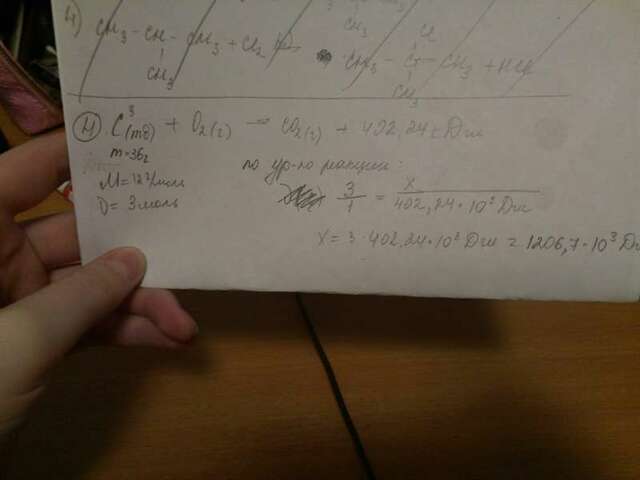 4) CH₃ - CH - CH₃ + Cl₂ CH₃ - C - CH₃ + HCl
CH₃ Cl
CH₃
CH₃
4) C(тв) + O₂(г) = CO₂(г) + 402,24 кДж
3
m=36г
M=12 г/моль
ν= 3моль
по ур-ю реакции:
3/1 = x/402,24·10³ Дж
x = 3·402,24·10³ Дж = 1206,7·10³ Дж